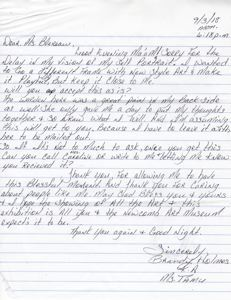 9/3/18
MON.
6:18 p.m.
Dear Ms
Good Evening Ma'am, Sorry For the
Delay in my Vision of my Self Portrait. I wanted
to Do a different theme with New Style Art & Make
it Playful, But Keep it Close to Me.
will you accept this as is?
as well. She only gave me a day to put my thoughts
together & so I Knew what I had. And I'm assuming
this will get to you, because I have to leave it with
her to be mailed out.
So If it's not to much to ask, once you get this
Can you call Caroline or write to me letting me know
you Recieved it?
Thank you, For allowing me to have
this Blessful Moment. And thank you For Caring
about people like me. May God Bless you & yours
& I hope the showing of All the Art & this
exhibition is All you & the Newcomb Art Museum
expects it to be.
Thank you again & Good Night.
Sincerely,
Brandy Holmes